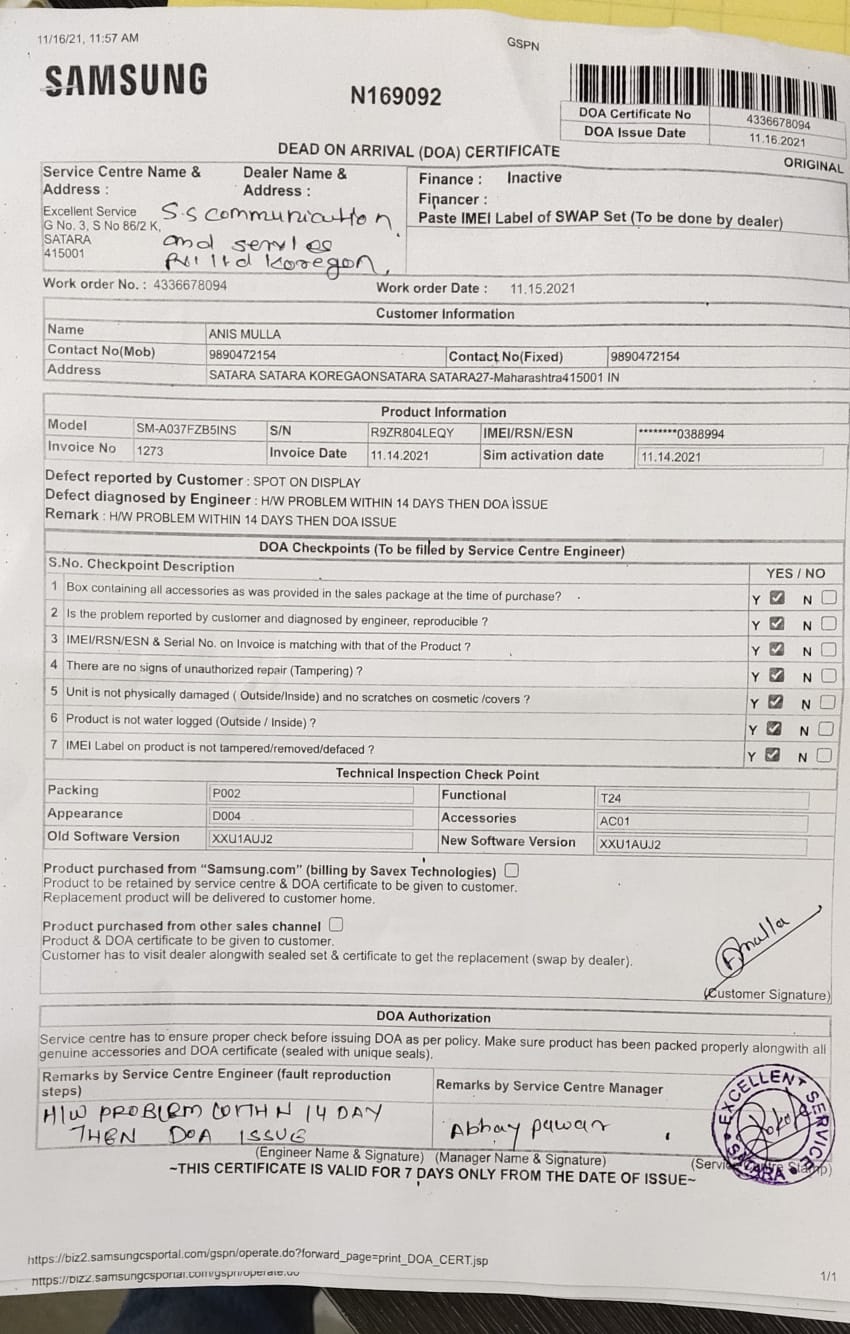 11/16/21, 11:57 AM
GSPN
SAMSUNG
N169092
DOA Certificate No 4336678094
DOA Issue Date 11.16.2021
DEAD ON ARRIVAL (DOA) CERTIFICATE
ORIGINAL
Service Centre Name & Address :
Excellent Service
G No. 3, S No 86/2 K,
SATARA
415001
Dealer Name & Address :
S.S communication
and services
Koregon,
Finance : Inactive
Financer :
Paste IMEI Label of SWAP Set (To be done by dealer)
Work order No. : 4336678094 Work order Date : 11.15.2021
Customer Information
Name ANIS MULLA
Contact No(Mob) 9890472154 Contact No(Fixed) 9890472154
Address SATARA SATARA KOREGAONSATARA SATARA27-Maharashtra415001 IN
Product Information
Model SM-A037FZB5INS S/N R9ZR804LEQY IMEI/RSN/ESN ********0388994
Invoice No 1273 Invoice Date 11.14.2021 Sim activation date 11.14.2021
Defect reported by Customer : SPOT ON DISPLAY
Defect diagnosed by Engineer : H/W PROBLEM WITHIN 14 DAYS THEN DOA ISSUE
Remark : H/W PROBLEM WITHIN 14 DAYS THEN DOA ISSUE
DOA Checkpoints (To be filled by Service Centre Engineer)
S.No. Checkpoint Description YES / NO
1 Box containing all accessories as was provided in the sales package at the time of purchase? Y N
2 Is the problem reported by customer and diagnosed by engineer, reproducible ? Y N
3 IMEI/RSN/ESN & Serial No. on Invoice is matching with that of the Product ? Y N
4 There are no signs of unauthorized repair (Tampering) ? Y N
5 Unit is not physically damaged ( Outside/Inside) and no scratches on cosmetic /covers ? Y N
6 Product is not water logged (Outside / Inside) ? Y N
7 IMEI Label on product is not tampered/removed/defaced ? Y N
Technical Inspection Check Point
Packing P002 Functional T24
Appearance D004 Accessories AC01
Old Software Version XXU1AUJ2 New Software Version XXU1AUJ2
Product purchased from “Samsung.com” (billing by Savex Technologies)
Product to be retained by service centre & DOA certificate to be given to customer.
Replacement product will be delivered to customer home.
Product purchased from other sales channel
Product & DOA certificate to be given to customer.
Customer has to visit dealer alongwith sealed set & certificate to get the replacement (swap by dealer).
Amulla
(Customer Signature)
DOA Authorization
Service centre has to ensure proper check before issuing DOA as per policy. Make sure product has been packed properly alongwith all
genuine accessories and DOA certificate (sealed with unique seals).
Remarks by Service Centre Engineer (fault reproduction steps)
H/W PROBLEM WITHIN 14 DAY
THEN DOA ISSUE
(Engineer Name & Signature)
Remarks by Service Centre Manager
Abhay pawar
(Manager Name & Signature)
EXCELLENT SERVICE
SATARA
(Service Centre Stamp)
~THIS CERTIFICATE IS VALID FOR 7 DAYS ONLY FROM THE DATE OF ISSUE~
https://biz2.samsungcsportal.com/gspn/operate.do?forward_page=print_DOA_CERT.jsp
1/1
https://biz2.samsungcsportal.com/gspn/operate.do